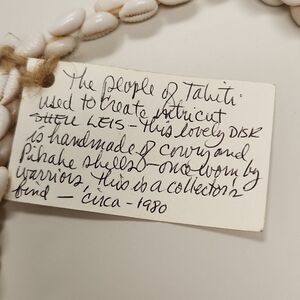 The people of Tahiti
used to create intricut
SHELL LEIS - This lovely DISK
is handmade of cowry and
Pikake shells - once worn by
warriors, This is a collector's
find - circa - 1980